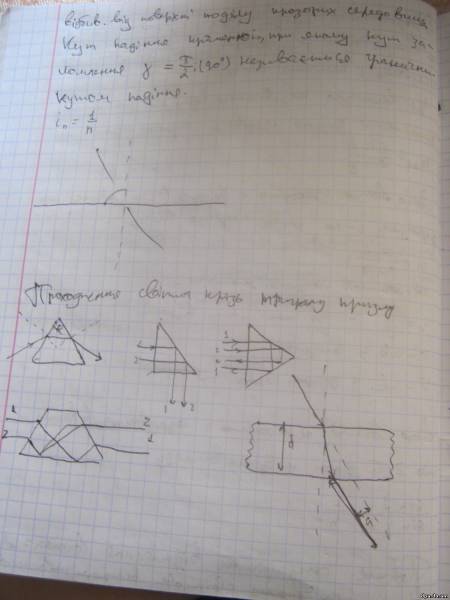 відбив. від поверхні поділу прозорих середовищ
Кут падіння променів, при якому кут за-
ломлення γ = π/2 (90°) називається граничн.
кутом падіння.
iп = 1/n
Проходження світла крізь тригранну призму
1 2 1 2
1 2 1
1 2 2 1
d